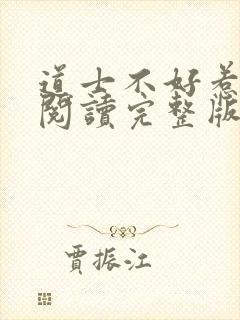 道士不好惹
閱讀完整版
賈振江